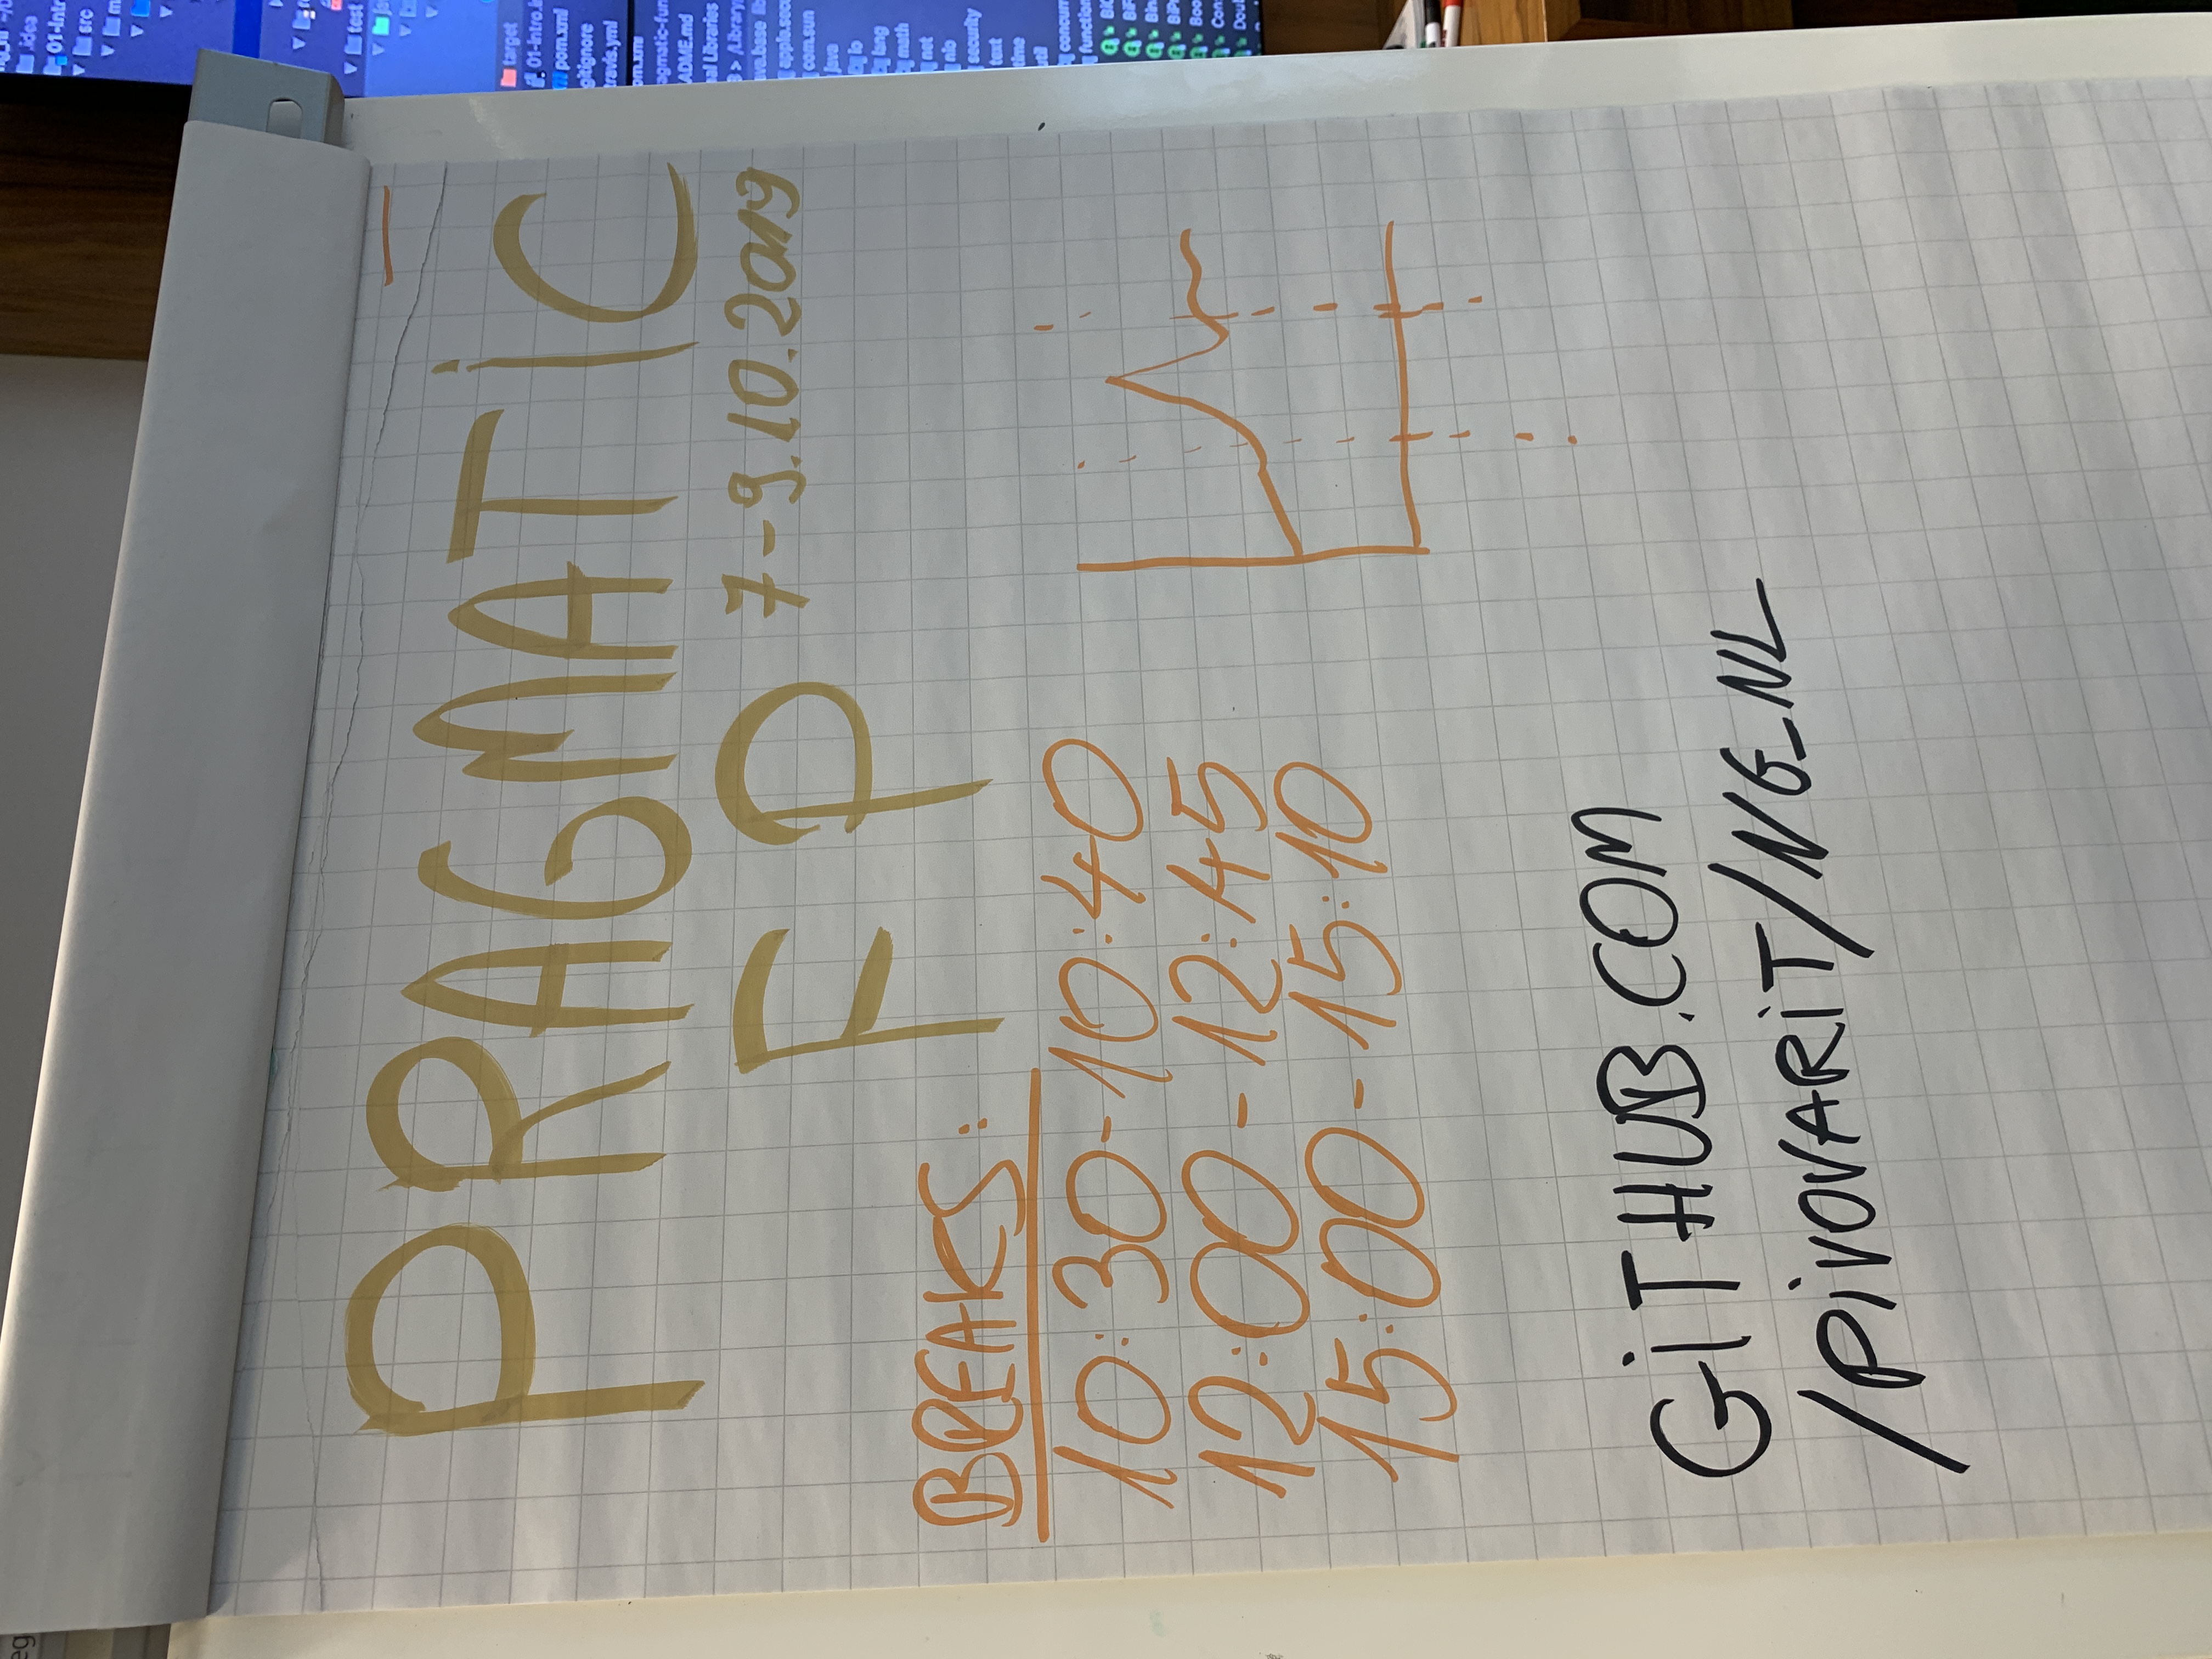 PRAGMATIC
FP 7-9.10.2019
BREAKS:
10:30-10:40
12:00-12:45
15:00-15:10
GITHUB.COM
/PIVOVARIT/NG_NL
.idea
01-intr
src
test
target
01-intro.i
pom.xml
gitignore
travis.yml
om.xml
agmatic-fun
ADME.md
nal Libraries
> /Library
ava.base lib
apple.secu
com.sun
java
io
lang
math
net
nio
security
text
time
util
concurr
function
BiC
BiF
Bina
BiPr
Boo
Con
Doub
eg